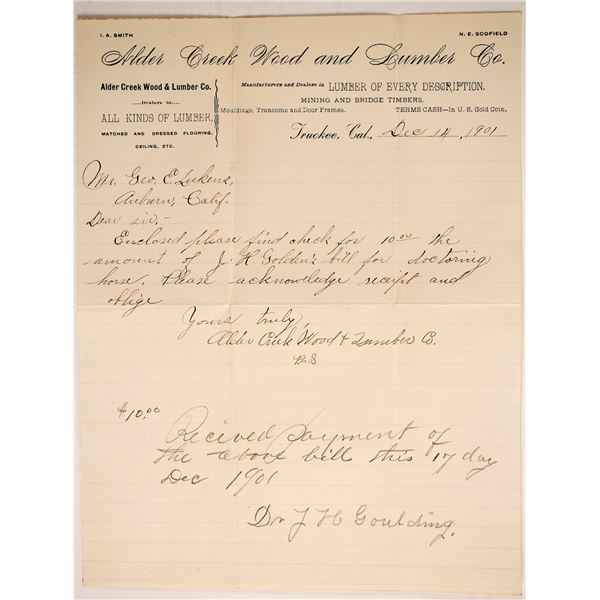 I. A. SMITH
N. E. SCOFIELD
Alder Creek Wood and Lumber Co.
Alder Creek Wood & Lumber Co.
....Dealers in....
ALL KINDS OF LUMBER,
MATCHED AND DRESSED FLOORING,
CEILING, ETC.
Manufacturers and Dealers in LUMBER OF EVERY DESCRIPTION.
MINING AND BRIDGE TIMBERS.
Mouldings, Transoms and Door Frames. TERMS CASH—In U. S. Gold Coin.
Truckee, Cal., Dec 14, 1901
Mr. Geo. E. Lukens,
Auburn, Calif.
Dear sir,-
Enclosed please find check for 10.00 the
amount of J. H. Golden's bill for doctoring
horse. Please acknowledge receipt and
oblige
Yours truly,
Alder Creek Wood & Lumber Co.
$10.00
Recived payment of
the above bill this 17 day
Dec 1901
Dr J H Goulding.